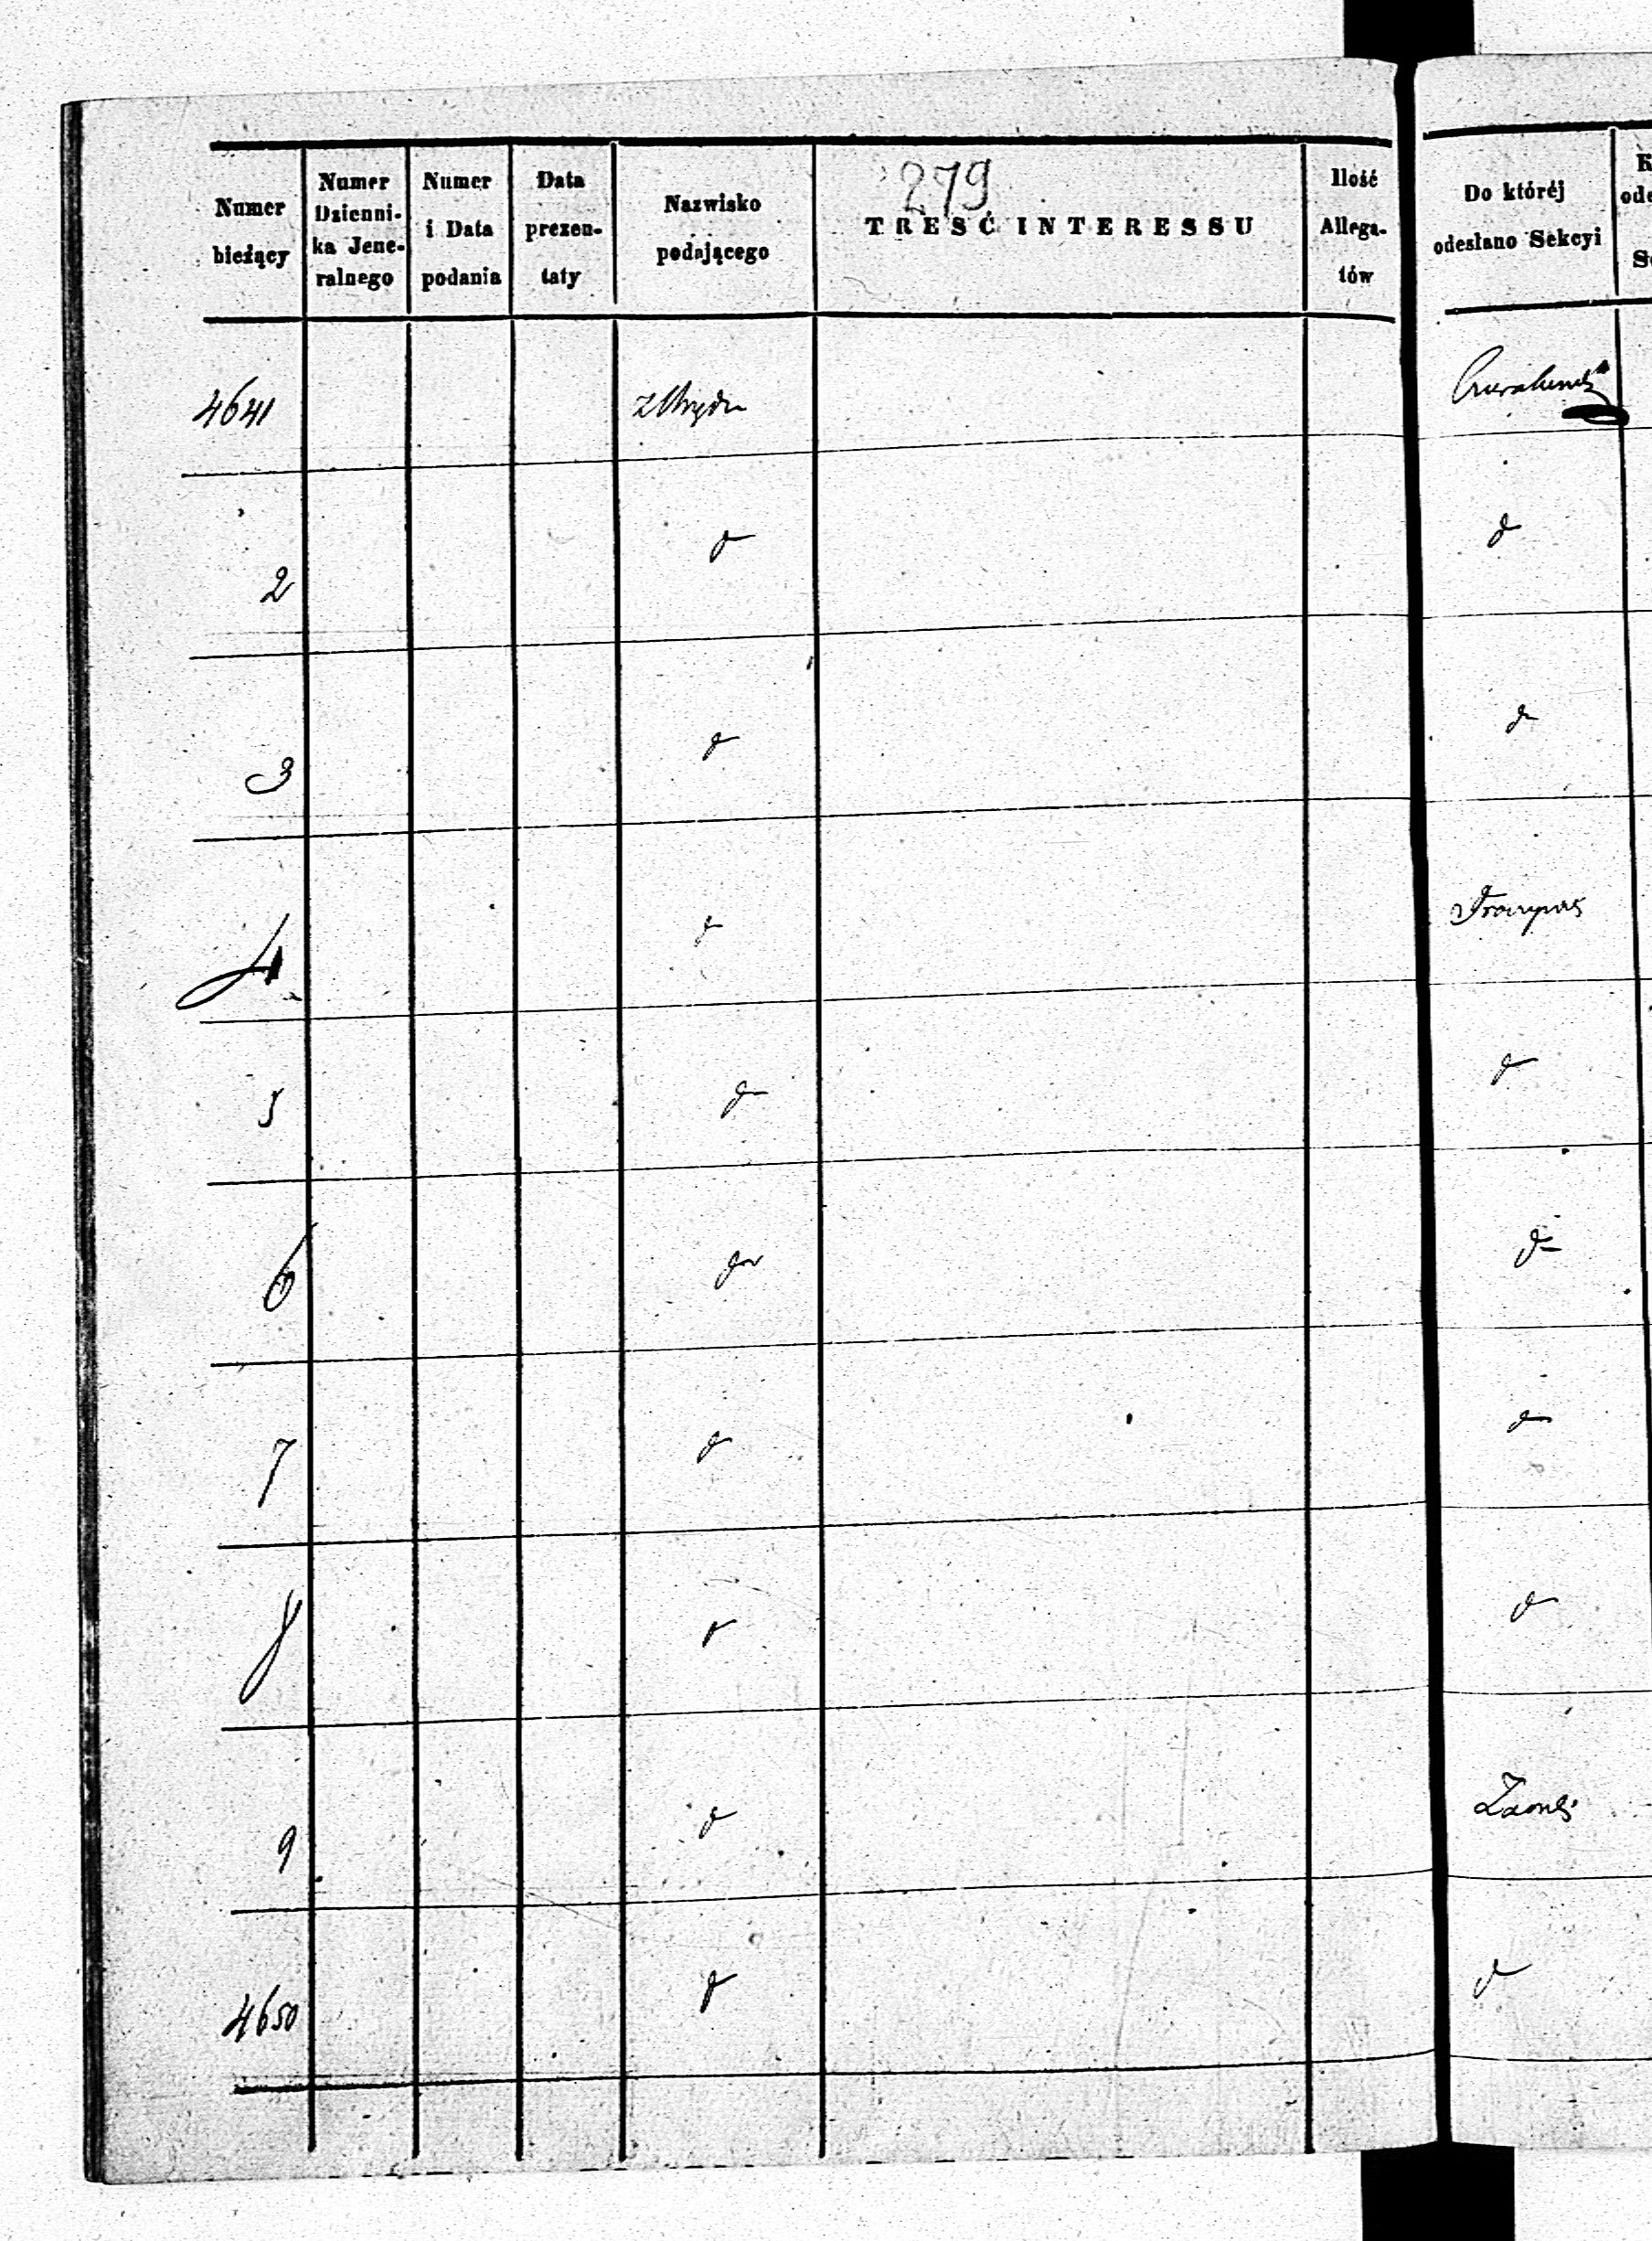 279
Numer bieżący
Numer Dzienni- ka Jene- ralnego
Numer i Data podania
Data prezen- taty
Nazwisko podającego
TRESĆ INTERESSU
Ilość Allega- tów
Do któréj odesłano Sekcyi
4641 z Urzędu
2 d
3 d
4 d
5 d d
6 d d
7 d d
8 d
9 d
4650 d d